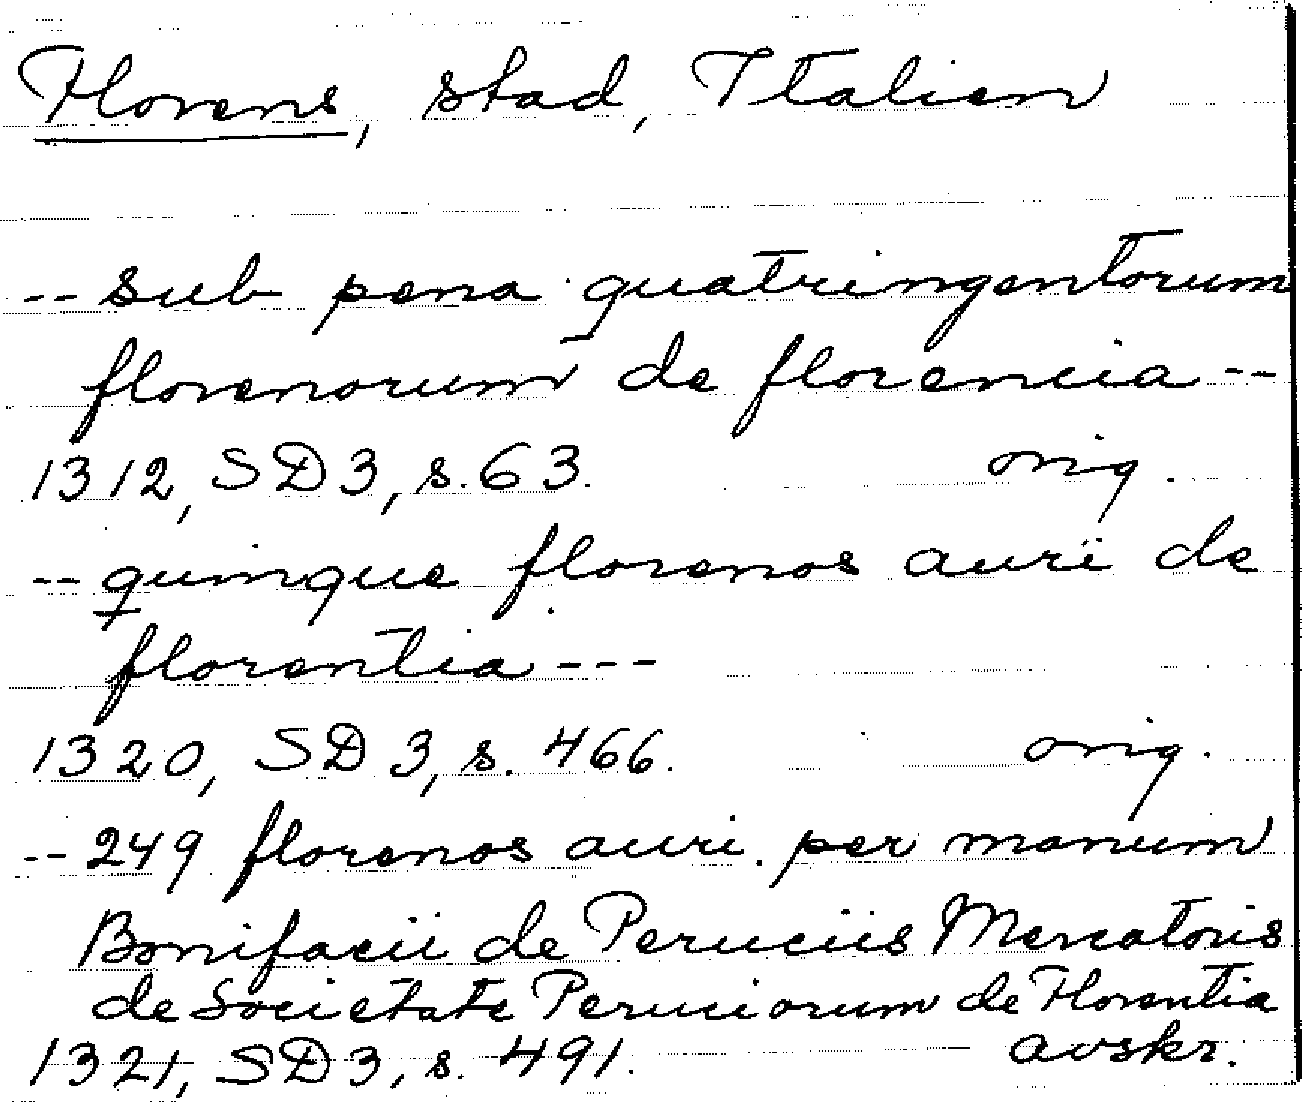 Florens, stad, Italien
-- sub pena quatringentorum
florenorum de florencia --
1312, SD3, s. 63. orig.
-- quinque florenos auri de
florentia ---
1320, SD 3, s. 466. orig.
-- 249 florenos auri per manum
Bonifacii de Peruciis Mercatoris
de Societate Peruciorum de Florentia
1321, SD3, s. 491. avskr.